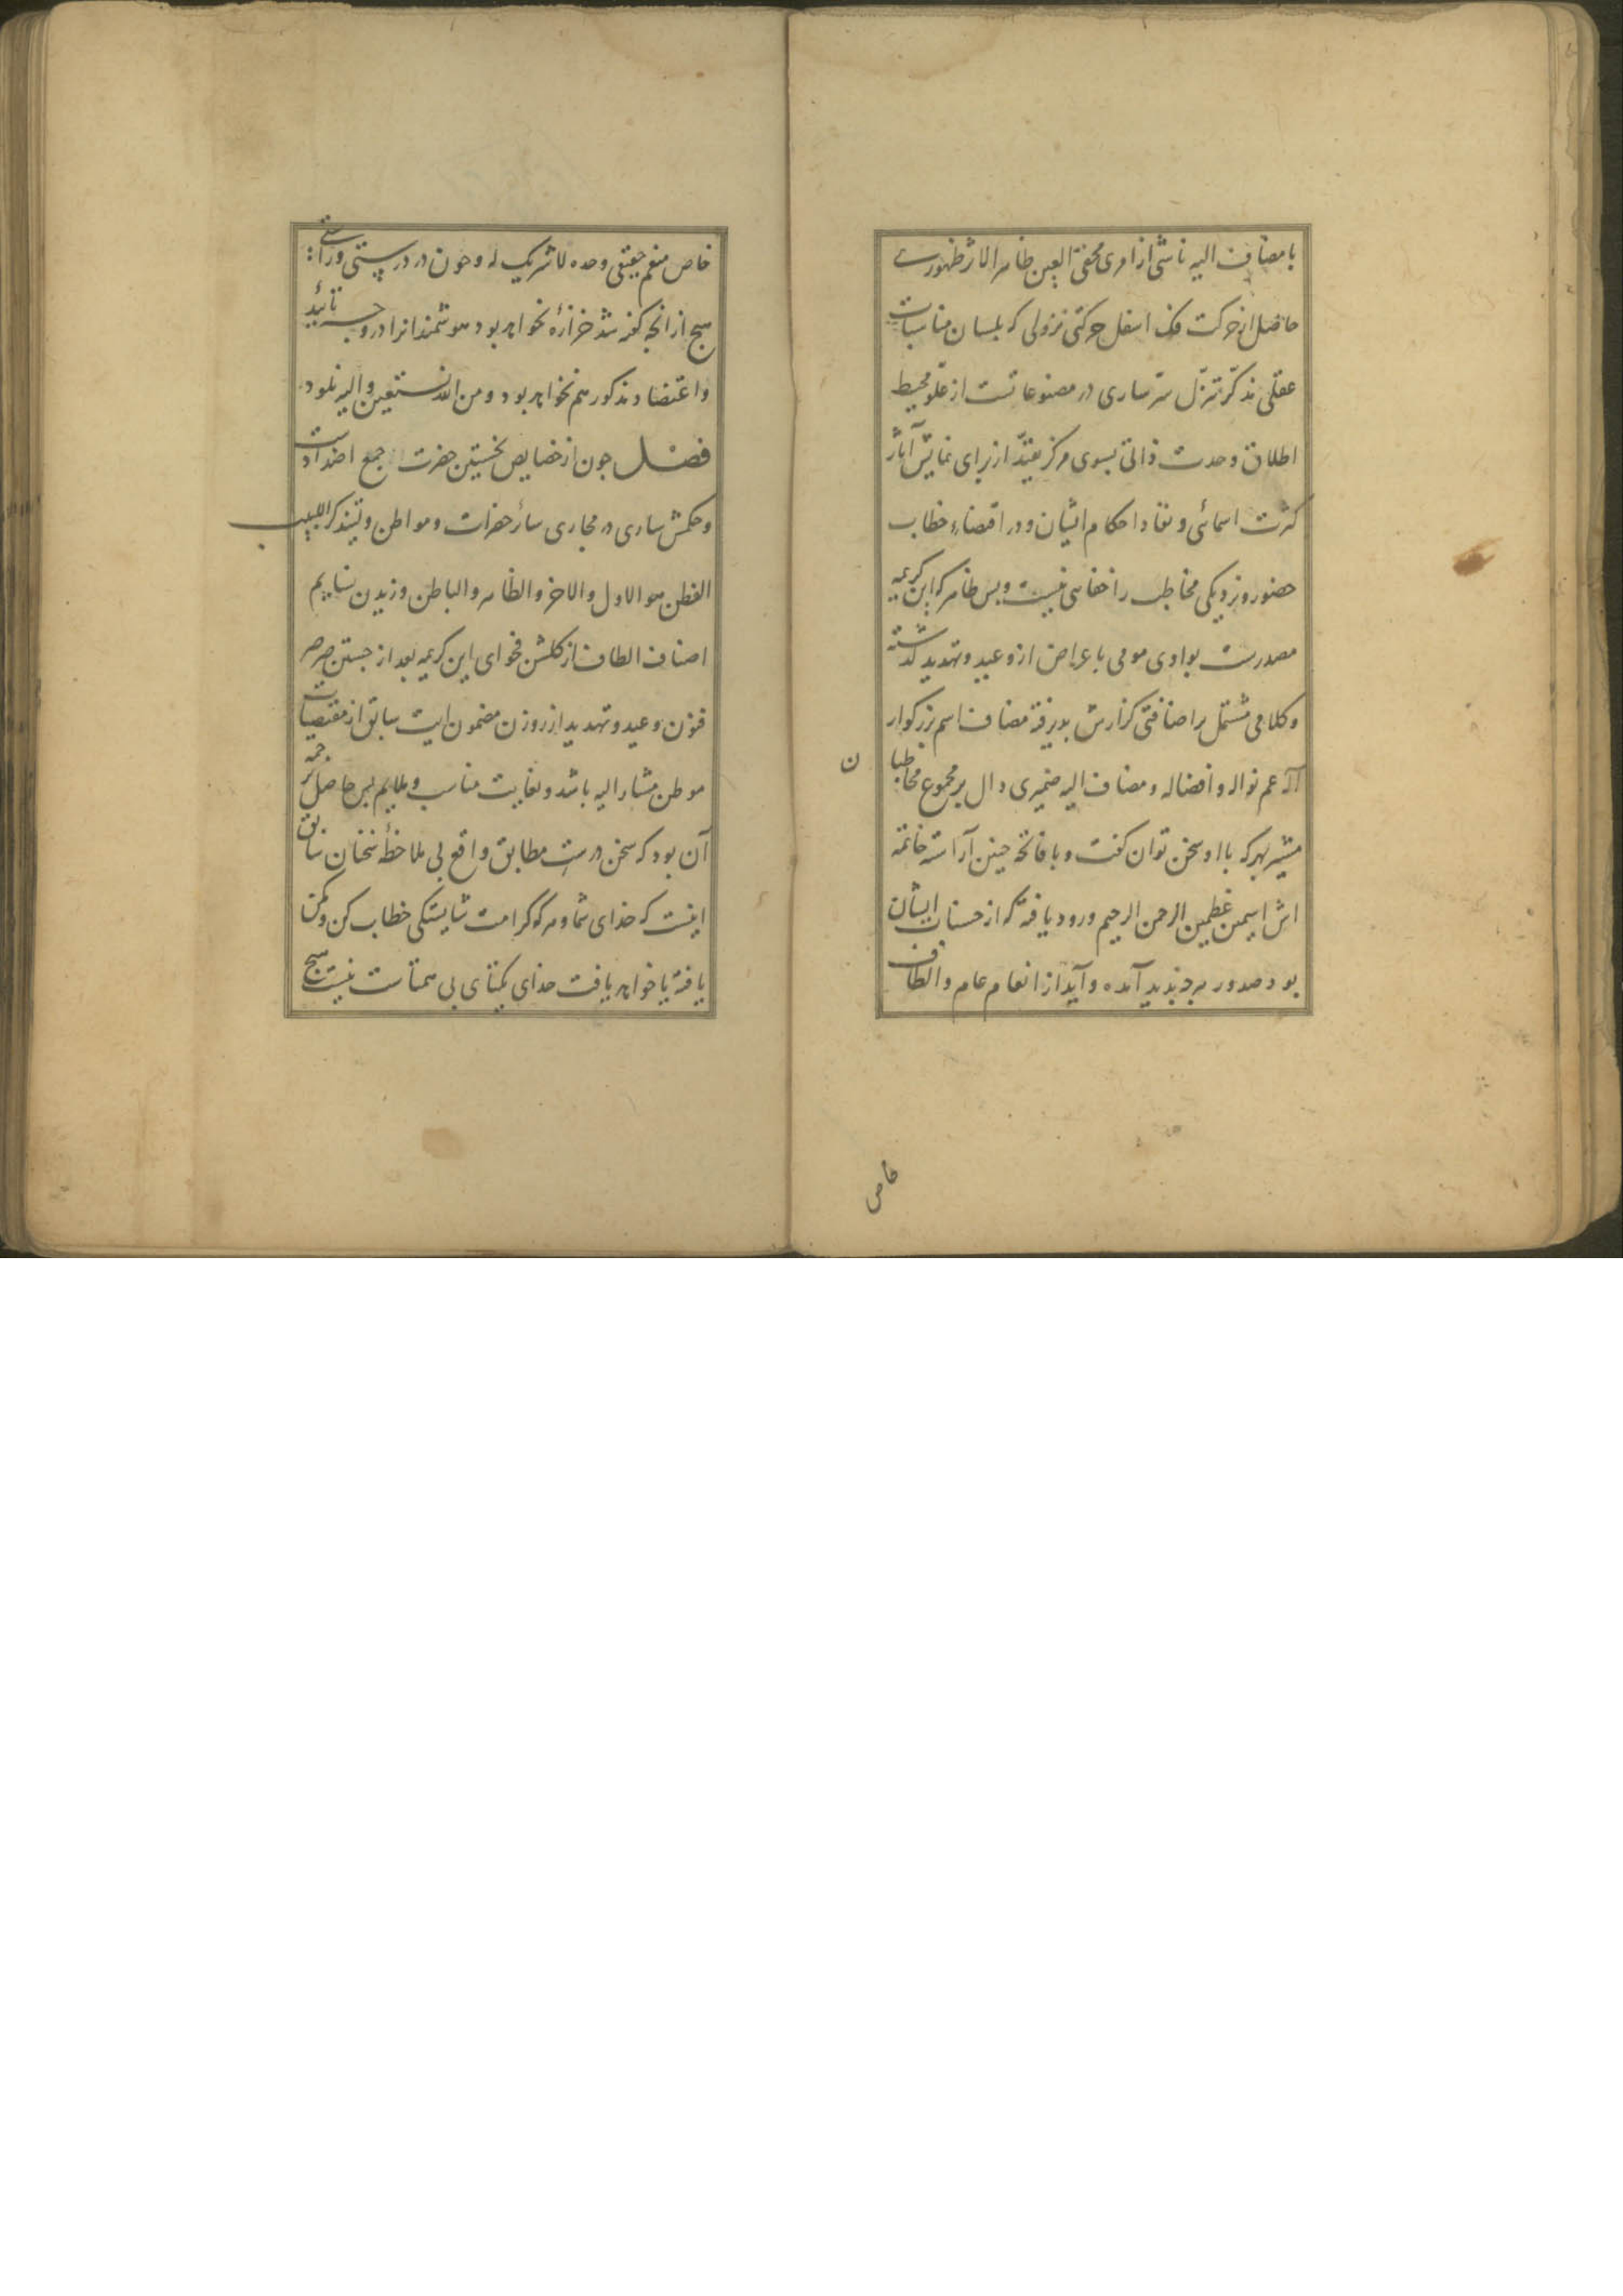 با مضاف الیه ناشی از امری مخفی العین ظاهر الاثر ظهورست
حاصل از حرکت فک اسفل حرکتی نزولی که بلسان مناسبات
عقلی مذکّر تنزّل سرّ ساری در مصنوعاتست از علوّ محیط
اطلاق وحدت ذاتی بسوی مرکز تقیّد از برای نمایش آثار
کثرت اسمائی و نفاد احکام ایشان و در اقتضاء خطاب
حضور و نزدیکی مخاطب را خفائی نیست و بس ظاهر که این کریمه
مصدرست بواوی مومی باعراض از وعید و تهدید گذشته
و کلامی مشتمل بر اضافتی گزارش پذیرفته مضاف اسم بزرگوار
آله عم نواله و افضاله و مضاف الیه ضمیری دال بر مجموع مخاطبا
ن
مشیر بهرکه با او سخن توان گفت و با فاتحه چنین آراسته خاتمه
اش اسمین عظیمین الرحمن الرحیم ورود یافته که از حسنات ایشان
بود صدور هرچه پدید آمده و آید از انعام عام و الطاف
خاص
خاص منعم حقیقی وحده لا شریک له و چون در درستی و راستی
هیچ از انچه گفته شد خزازهٔ نخواهد بود هوشمندانرا در وجه تائید
و اعتضاد مذکور هم نخواهد بود و من الله نستعین و الیه نلوذ
فصل چون از خصایص نخستین حضرت جمع اضدادست
و حکمش ساری در مجاری سائر حضرات و مواطن و لیتذکر اللبیب
الفطن هو الاول و الاخر و الظاهر و الباطن وزیدن نسایم
اصناف الطاف از گلشن فحوای این کریمه بعد از جستن صرصر
فنون وعید و تهدید از روزن مضمون ایت سابق از مقتضیات
موطن مشار الیه باشد و بغایت مناسب و ملایم پس حاصل ترجمه
آن بود که سخن درست مطابق واقع بی ملاحظهٔ سخنان سابق
اینست که خدای شما و هر که کرامت شایستگی خطاب کن و مکن
یافته یا خواهد یافت خدای یکتای بی همتاست نیست هیچ